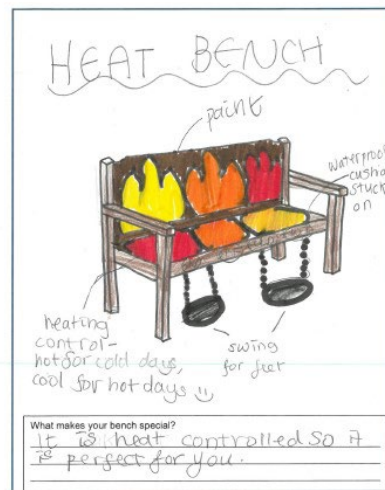 HEAT BENCH
paint
waterproof
cushion
stuck
on
heating
control-
hot for cold days,
cool for hot days
swing
for feet
What makes your bench special?
It is heat controlled so it
is perfect for you.